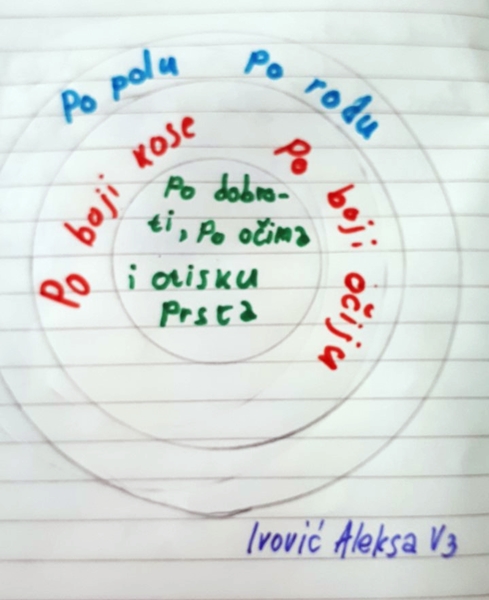 Po polu
Po rodu
Po boji kose
Po boji očiju
Po dobro-
ti, Po očima
i otisku
Prsta
Ivović Aleksa V3